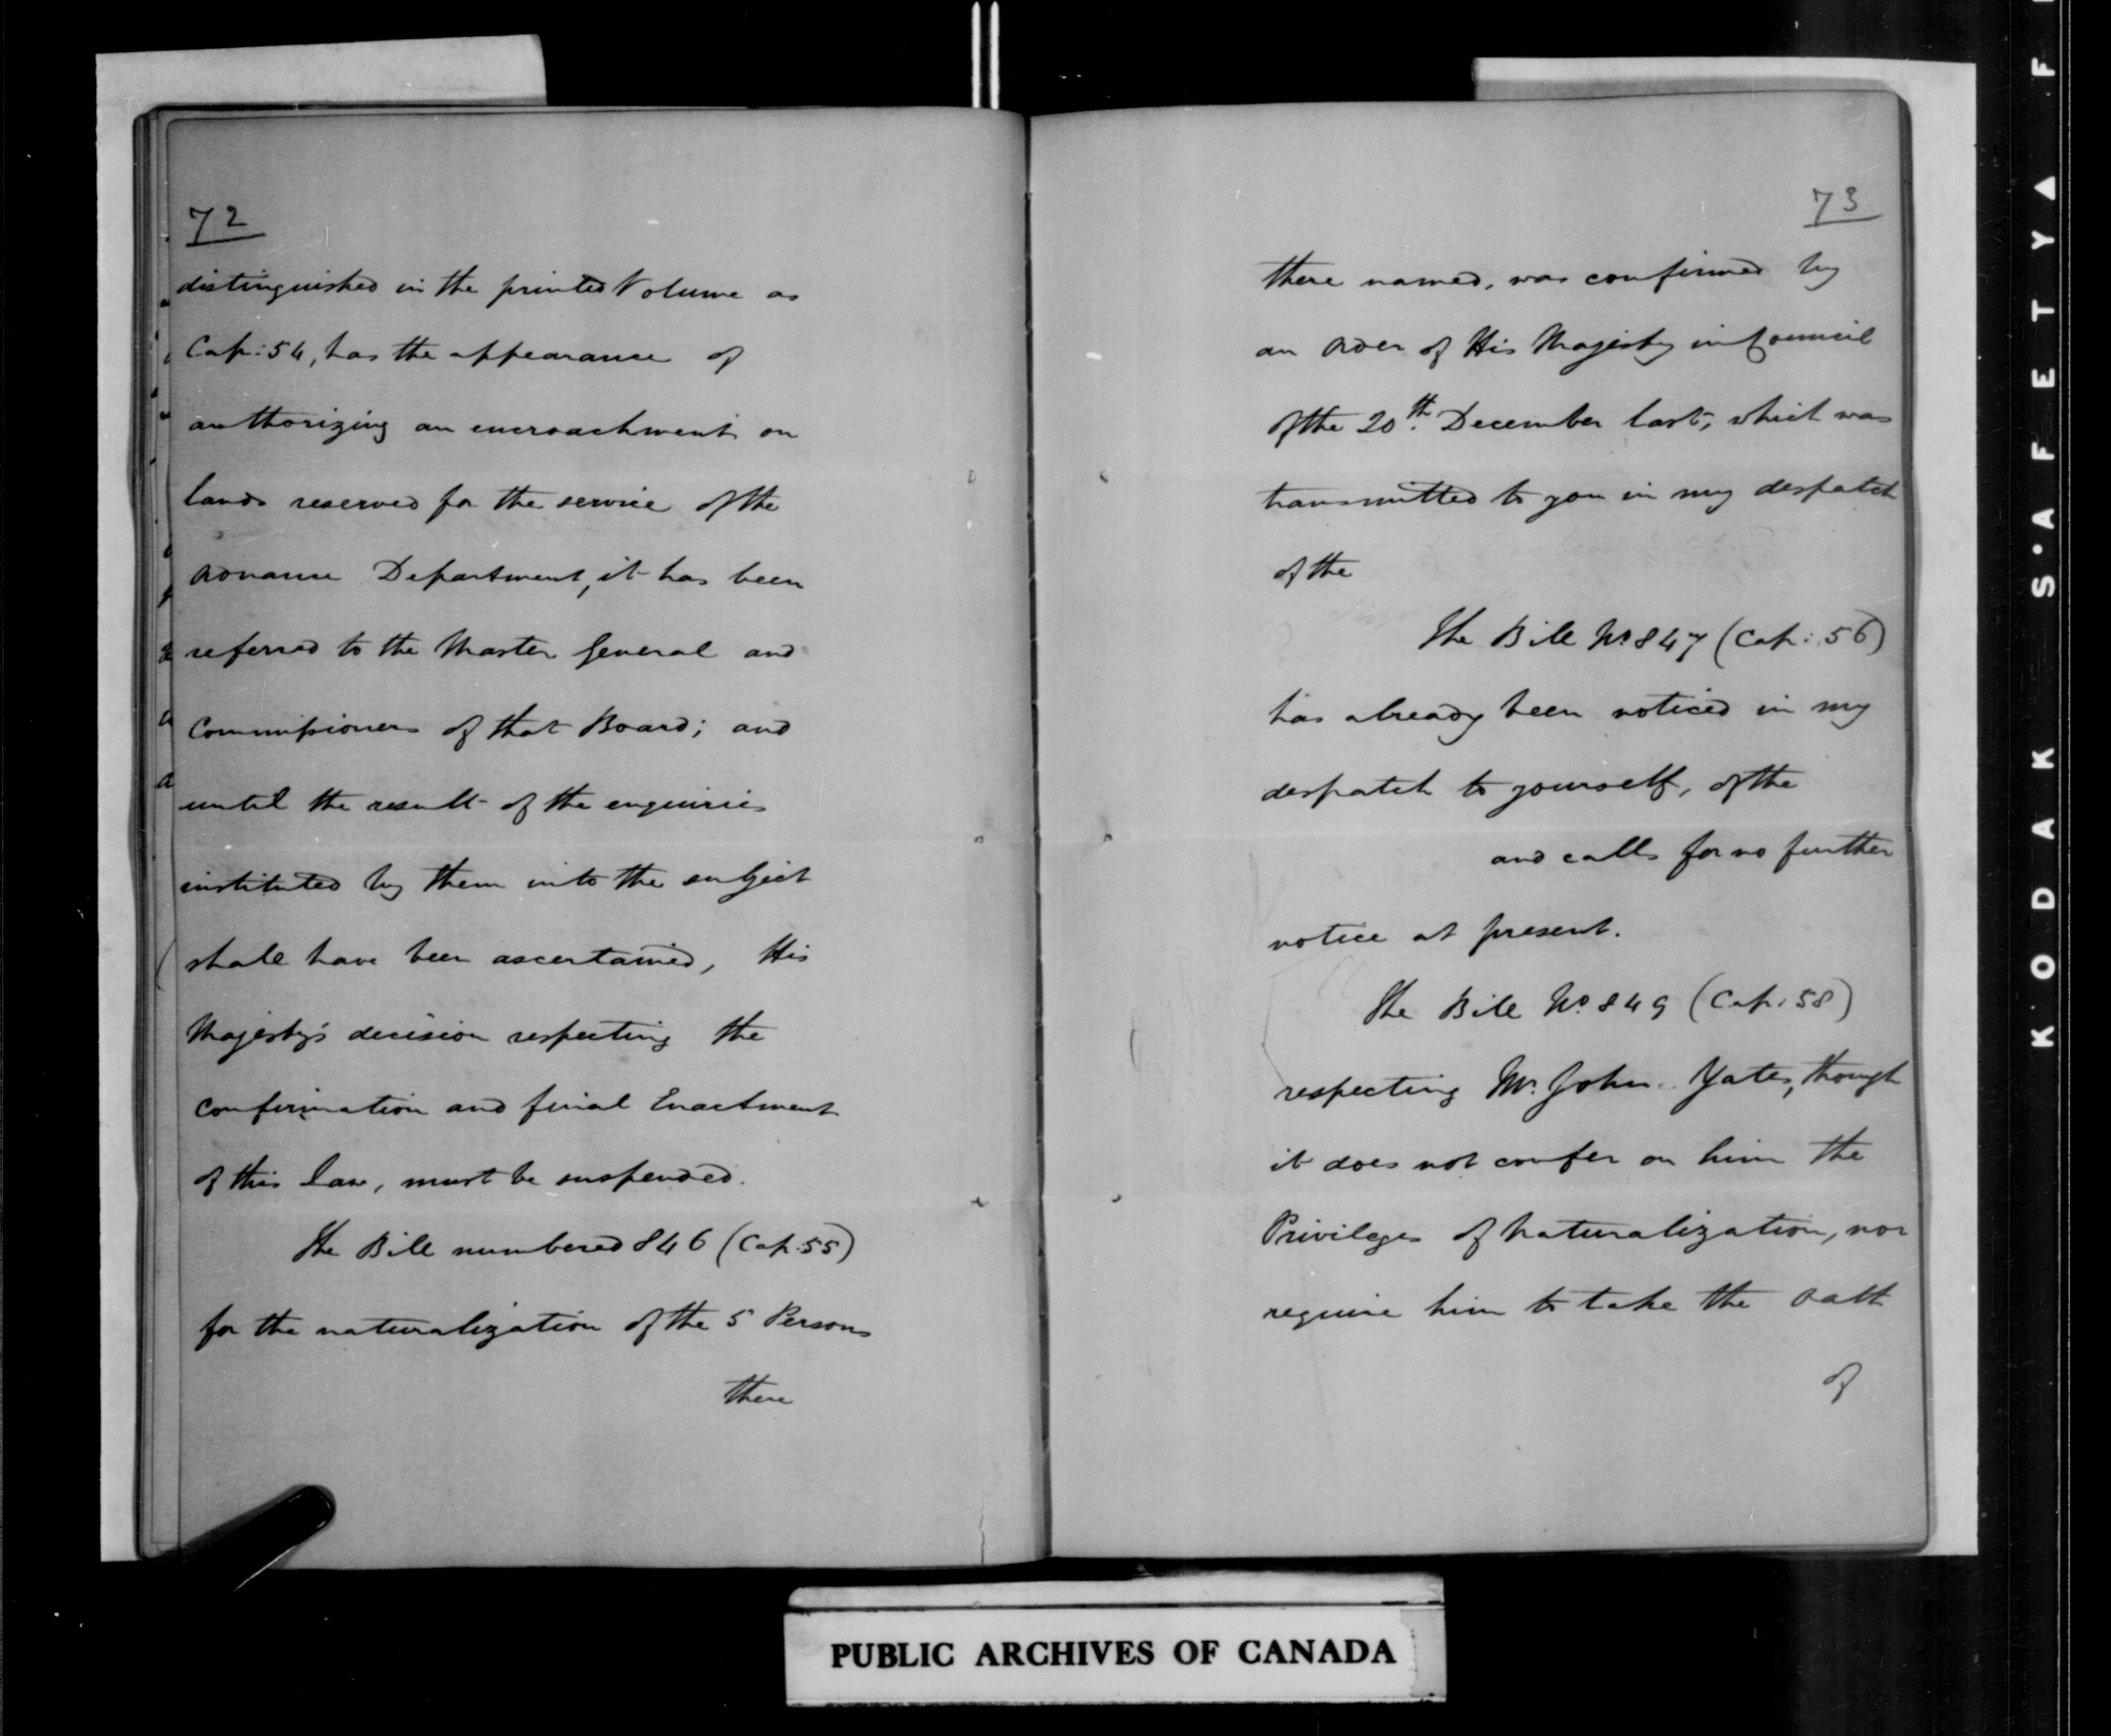 72
distinguished in the printed Volume as
Cap: 54, has the appearance of
authorizing an encroachment on
lands reserved for the service of the
Ordnance Department, it has been
referred to the Master General and
Commissioners of that Board; and
until the result of the enquiries
instituted by them into the subject
shall have been ascertained, His
Majesty's decision respecting the
confirmation and final Enactment
of this law, must be suspended.
The Bill numbered 846 (Cap: 55)
for the naturalization of the 5 Persons
there
73
there named, was confirmed by
an Order of His Majesty in Council
of the 20th December last, which was
transmitted to you in my despatch
of the
The Bill No 847 (Cap: 56)
has already been noticed in my
despatch to yourself, of the
and calls for no further
notice at present.
The Bill No. 849 (Cap: 58)
respecting Mr. John Yates, though
it does not confer on him the
Privileges of Naturalization, nor
require him to take the Oath
of
PUBLIC ARCHIVES OF CANADA
KODAK S·AFETY▲F